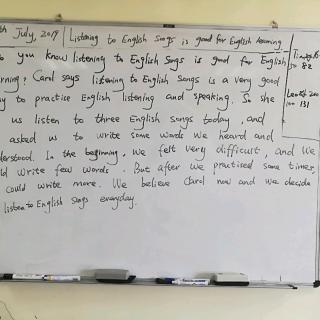 th July, 2017 Listening to English Songs is good for English learning
you know listening to English Songs is good for English
rning? Carol says listening to English Songs is a very good
y to practise English listening and speaking. So she
us listen to three English songs today, and
asked us to write some words we heard and
derstood. In the beginning, we felt very difficult, and we
ld write few words. But after we practised some times,
could write more. We believe Carol now and we decide
listen to English songs everyday.
= 82
= 131